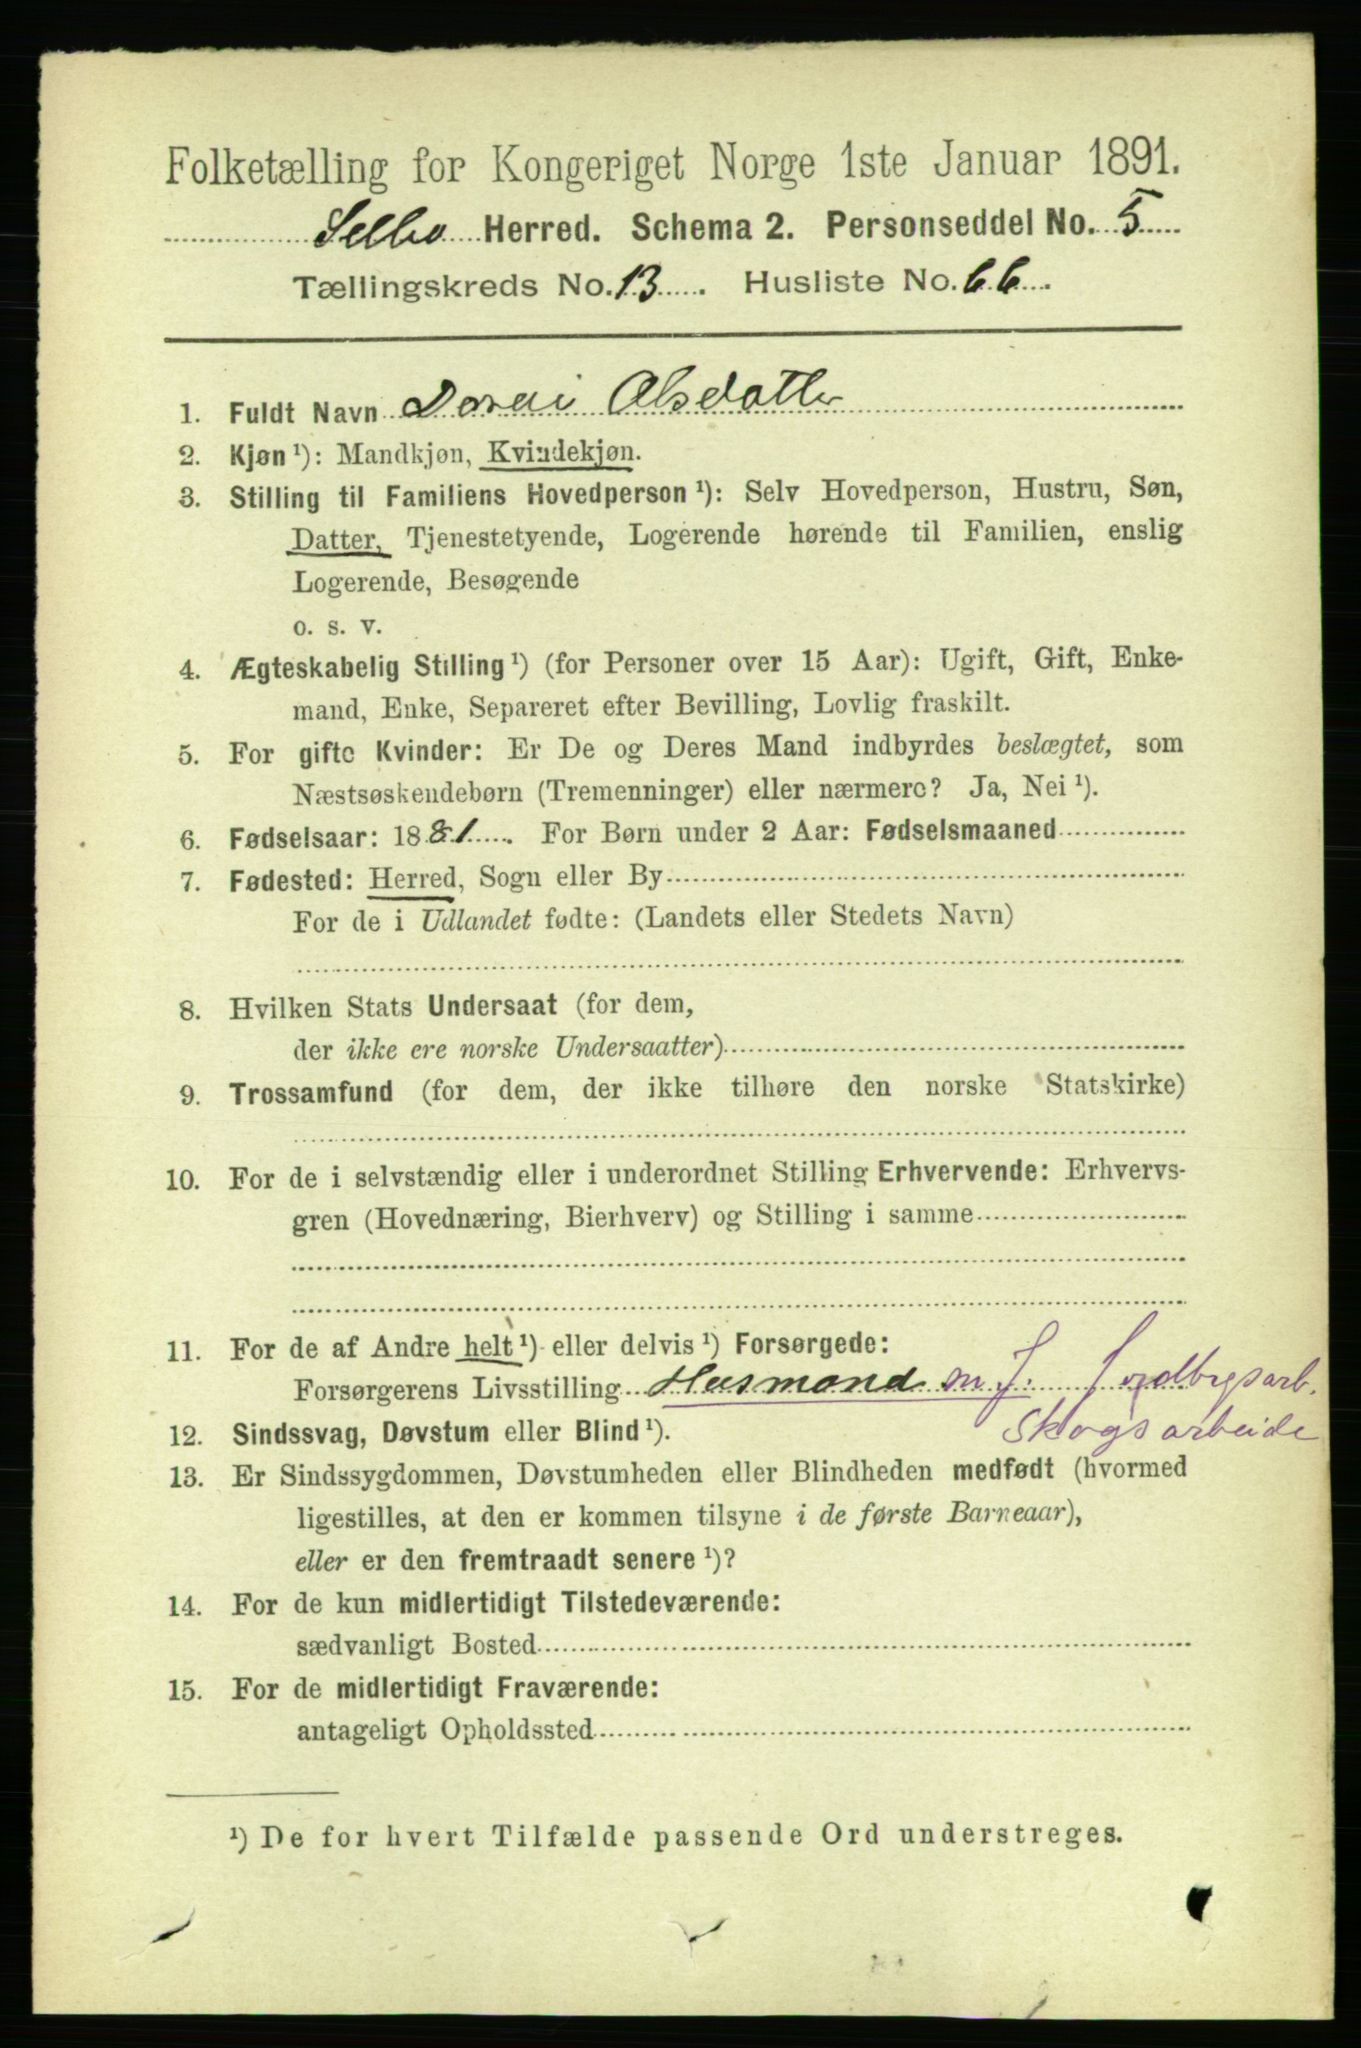 Folketælling for Kongeriget Norge 1ste Januar 1891.
Selbo Herred. Schema 2. Personseddel No. 5
Tællingskreds No. 13. Husliste No. 66.
1. Fuldt Navn Olsdatter
2. Kjøn ¹): Mandkjøn, Kvindekjøn.
3. Stilling til Familiens Hovedperson ¹): Selv Hovedperson, Hustru, Søn,
Datter, Tjenestetyende, Logerende hørende til Familien, enslig
Logerende, Besøgende
o. s. v.
4. Ægteskabelig Stilling ¹) (for Personer over 15 Aar): Ugift, Gift, Enke-
mand, Enke, Separeret efter Bevilling, Lovlig fraskilt.
5. For gifte Kvinder: Er De og Deres Mand indbyrdes beslægtet, som
Næstsøskendebørn (Tremenninger) eller nærmere? Ja, Nei ¹).
6. Fødselsaar: 1881. For Børn under 2 Aar: Fødselsmaaned
7. Fødested: Herred, Sogn eller By
For de i Udlandet fødte: (Landets eller Stedets Navn)
8. Hvilken Stats Undersaat (for dem,
der ikke ere norske Undersaatter)
9. Trossamfund (for dem, der ikke tilhøre den norske Statskirke)
10. For de i selvstændig eller i underordnet Stilling Erhvervende: Erhvervs-
gren (Hovednæring, Bierhverv) og Stilling i samme
11. For de af Andre helt ¹) eller delvis ¹) Forsørgede:
Forsørgerens Livsstilling Husmand m J. Jordbrgsarb.
Skogsarbeide
12. Sindssvag, Døvstum eller Blind ¹).
13. Er Sindssygdommen, Døvstumheden eller Blindheden medfødt (hvormed
ligestilles, at den er kommen tilsyne i de første Barneaar),
eller er den fremtraadt senere ¹)?
14. For de kun midlertidigt Tilstedeværende:
sædvanligt Bosted
15. For de midlertidigt Fraværende:
antageligt Opholdssted
¹) De for hvert Tilfælde passende Ord understreges.